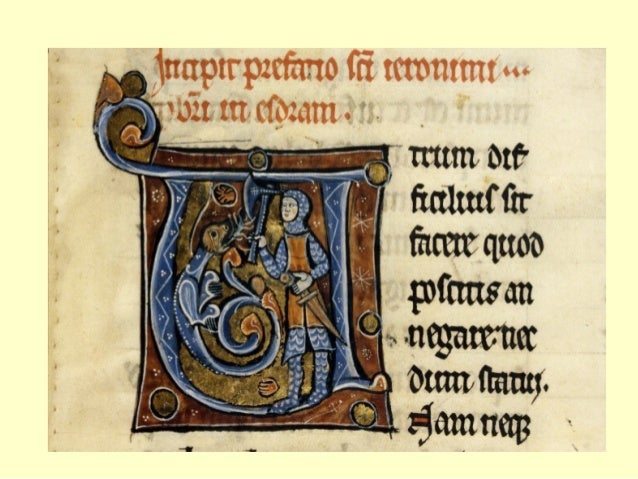 Incipit prefatio sc̄i ieronimi
pb̄ri in esdram.
Utrum dif
ficilius sit
facere quod
poscitis an
negare: nec
dum statui.
Nam neqꝫ